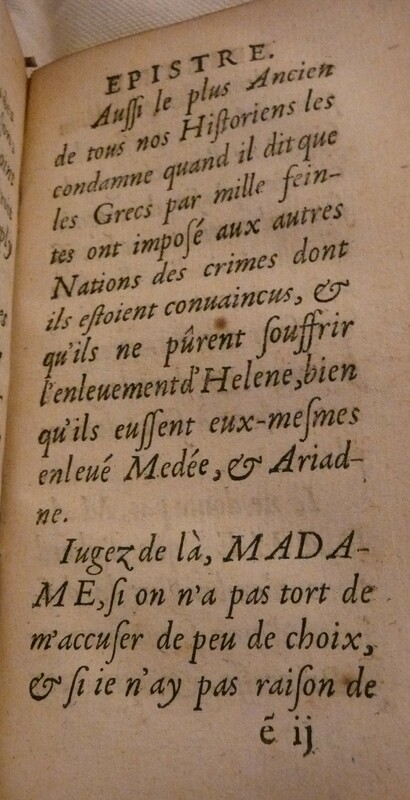 EPISTRE.
Auſſi le plus Ancien
de tous nos Hiſtoriens les
condamne quand il dit que
les Grecs par mille fein-
tes ont impoſé aux autres
Nations des crimes dont
ils eſtoient conuaincus, &
qu'ils ne pûrent ſouffrir
l'enleuement d'Helene, bien
qu'ils euſſent eux-meſmes
enleué Medée, & Ariad-
ne.
Iugez de là, MADA-
ME, ſi on n'a pas tort de
m'accuſer de peu de choix,
& ſi ie n'ay pas raiſon de
é ij